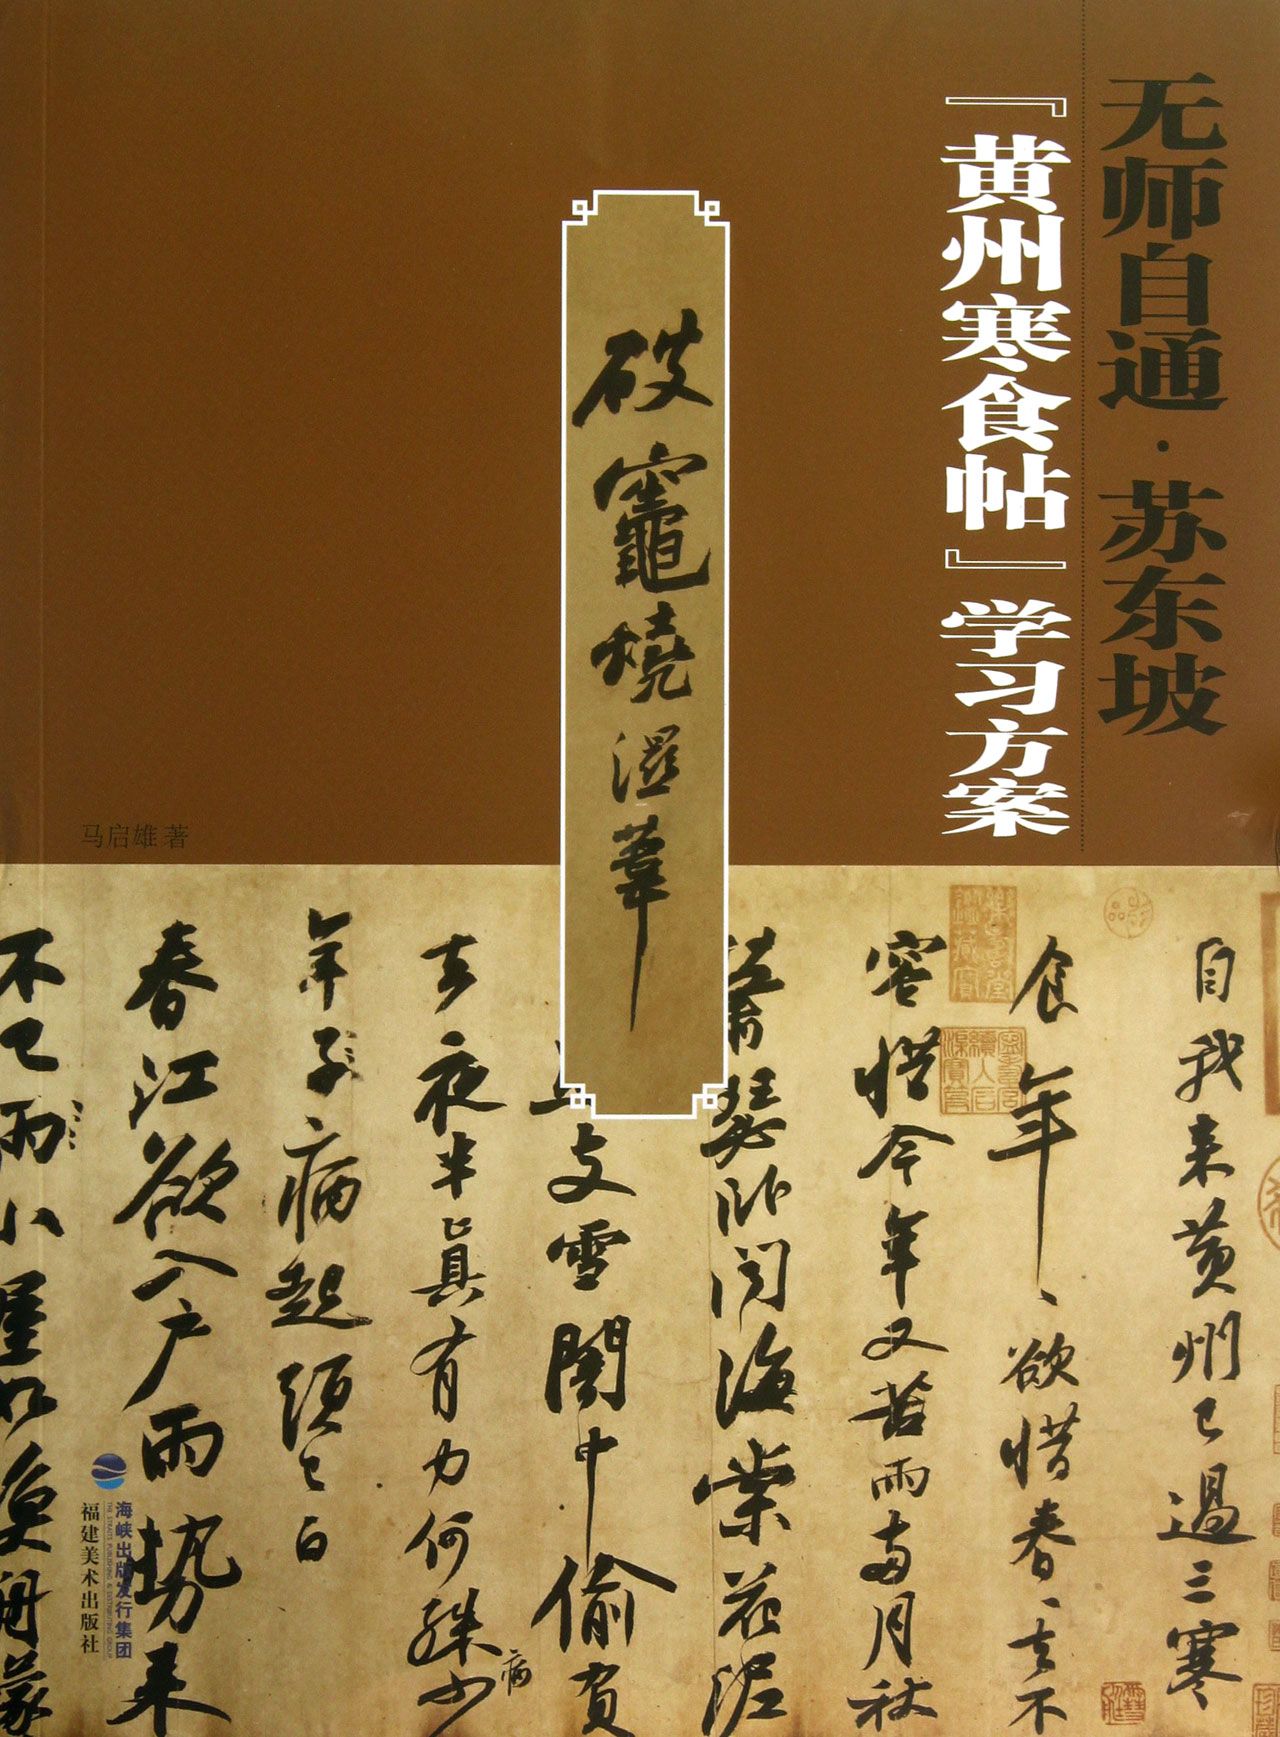 无师自通·苏东坡
『黄州寒食帖』学习方案
破竈燒濕葦
马启雄 著
自我来黄州已過三寒
食年〻欲惜春〻去不
容惜今年又苦雨两月秋
蕭瑟卧聞海棠花泥
支雪闇中偷負
去夜半真有力何殊少
病
年子病起須已白
春江欲入户雨势来
不已雨小屋如漁舟濛
海峡出版发行集团
THE STRAITS PUBLISHING & DISTRIBUTING GROUP
福建美术出版社